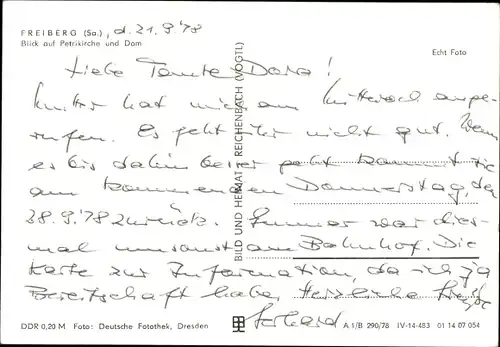 FREIBERG (Sa.), d. 21.9.'78
Blick auf Petrikirche und Dom
Echt Foto
Liebe Tante Dora!
Mutter hat mich am Mittwoch ange-
rufen. Es geht ihr nicht gut. Wenn
es bis dahin besser geht kommt sie
am kommenden Donnerstag, d.
28.9.'78 zurück. war dies-
mal umsonst am Bahnhof. Die
Karte zur Information, da ich ja
Bereitschaft habe. Herzliche Grüße
Gerhard
BILD UND HEIMAT REICHENBACH (VOGTL)
DDR 0,20 M Foto: Deutsche Fotothek, Dresden
A 1/B 290/78 IV-14-483 01 14 07 054